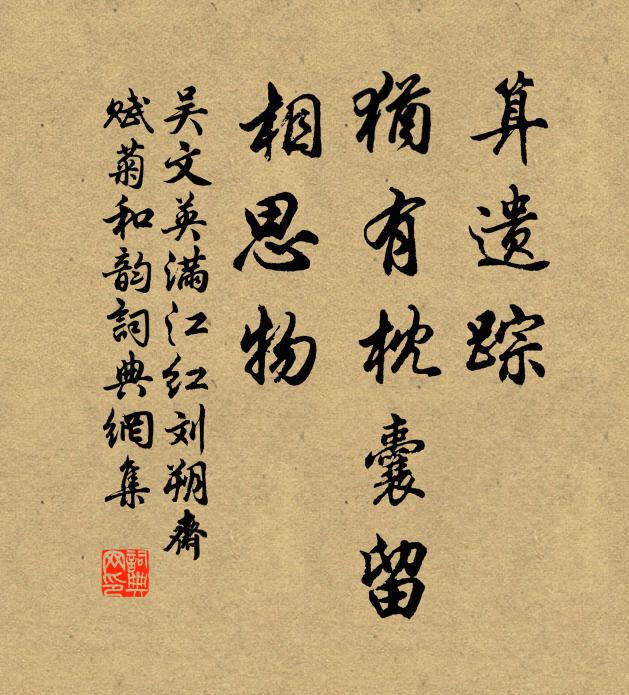 算遗踪
猶有枕囊留
相思物
吴文英满江红刘朔斋
赋菊和韵詞典網集
詞典网印